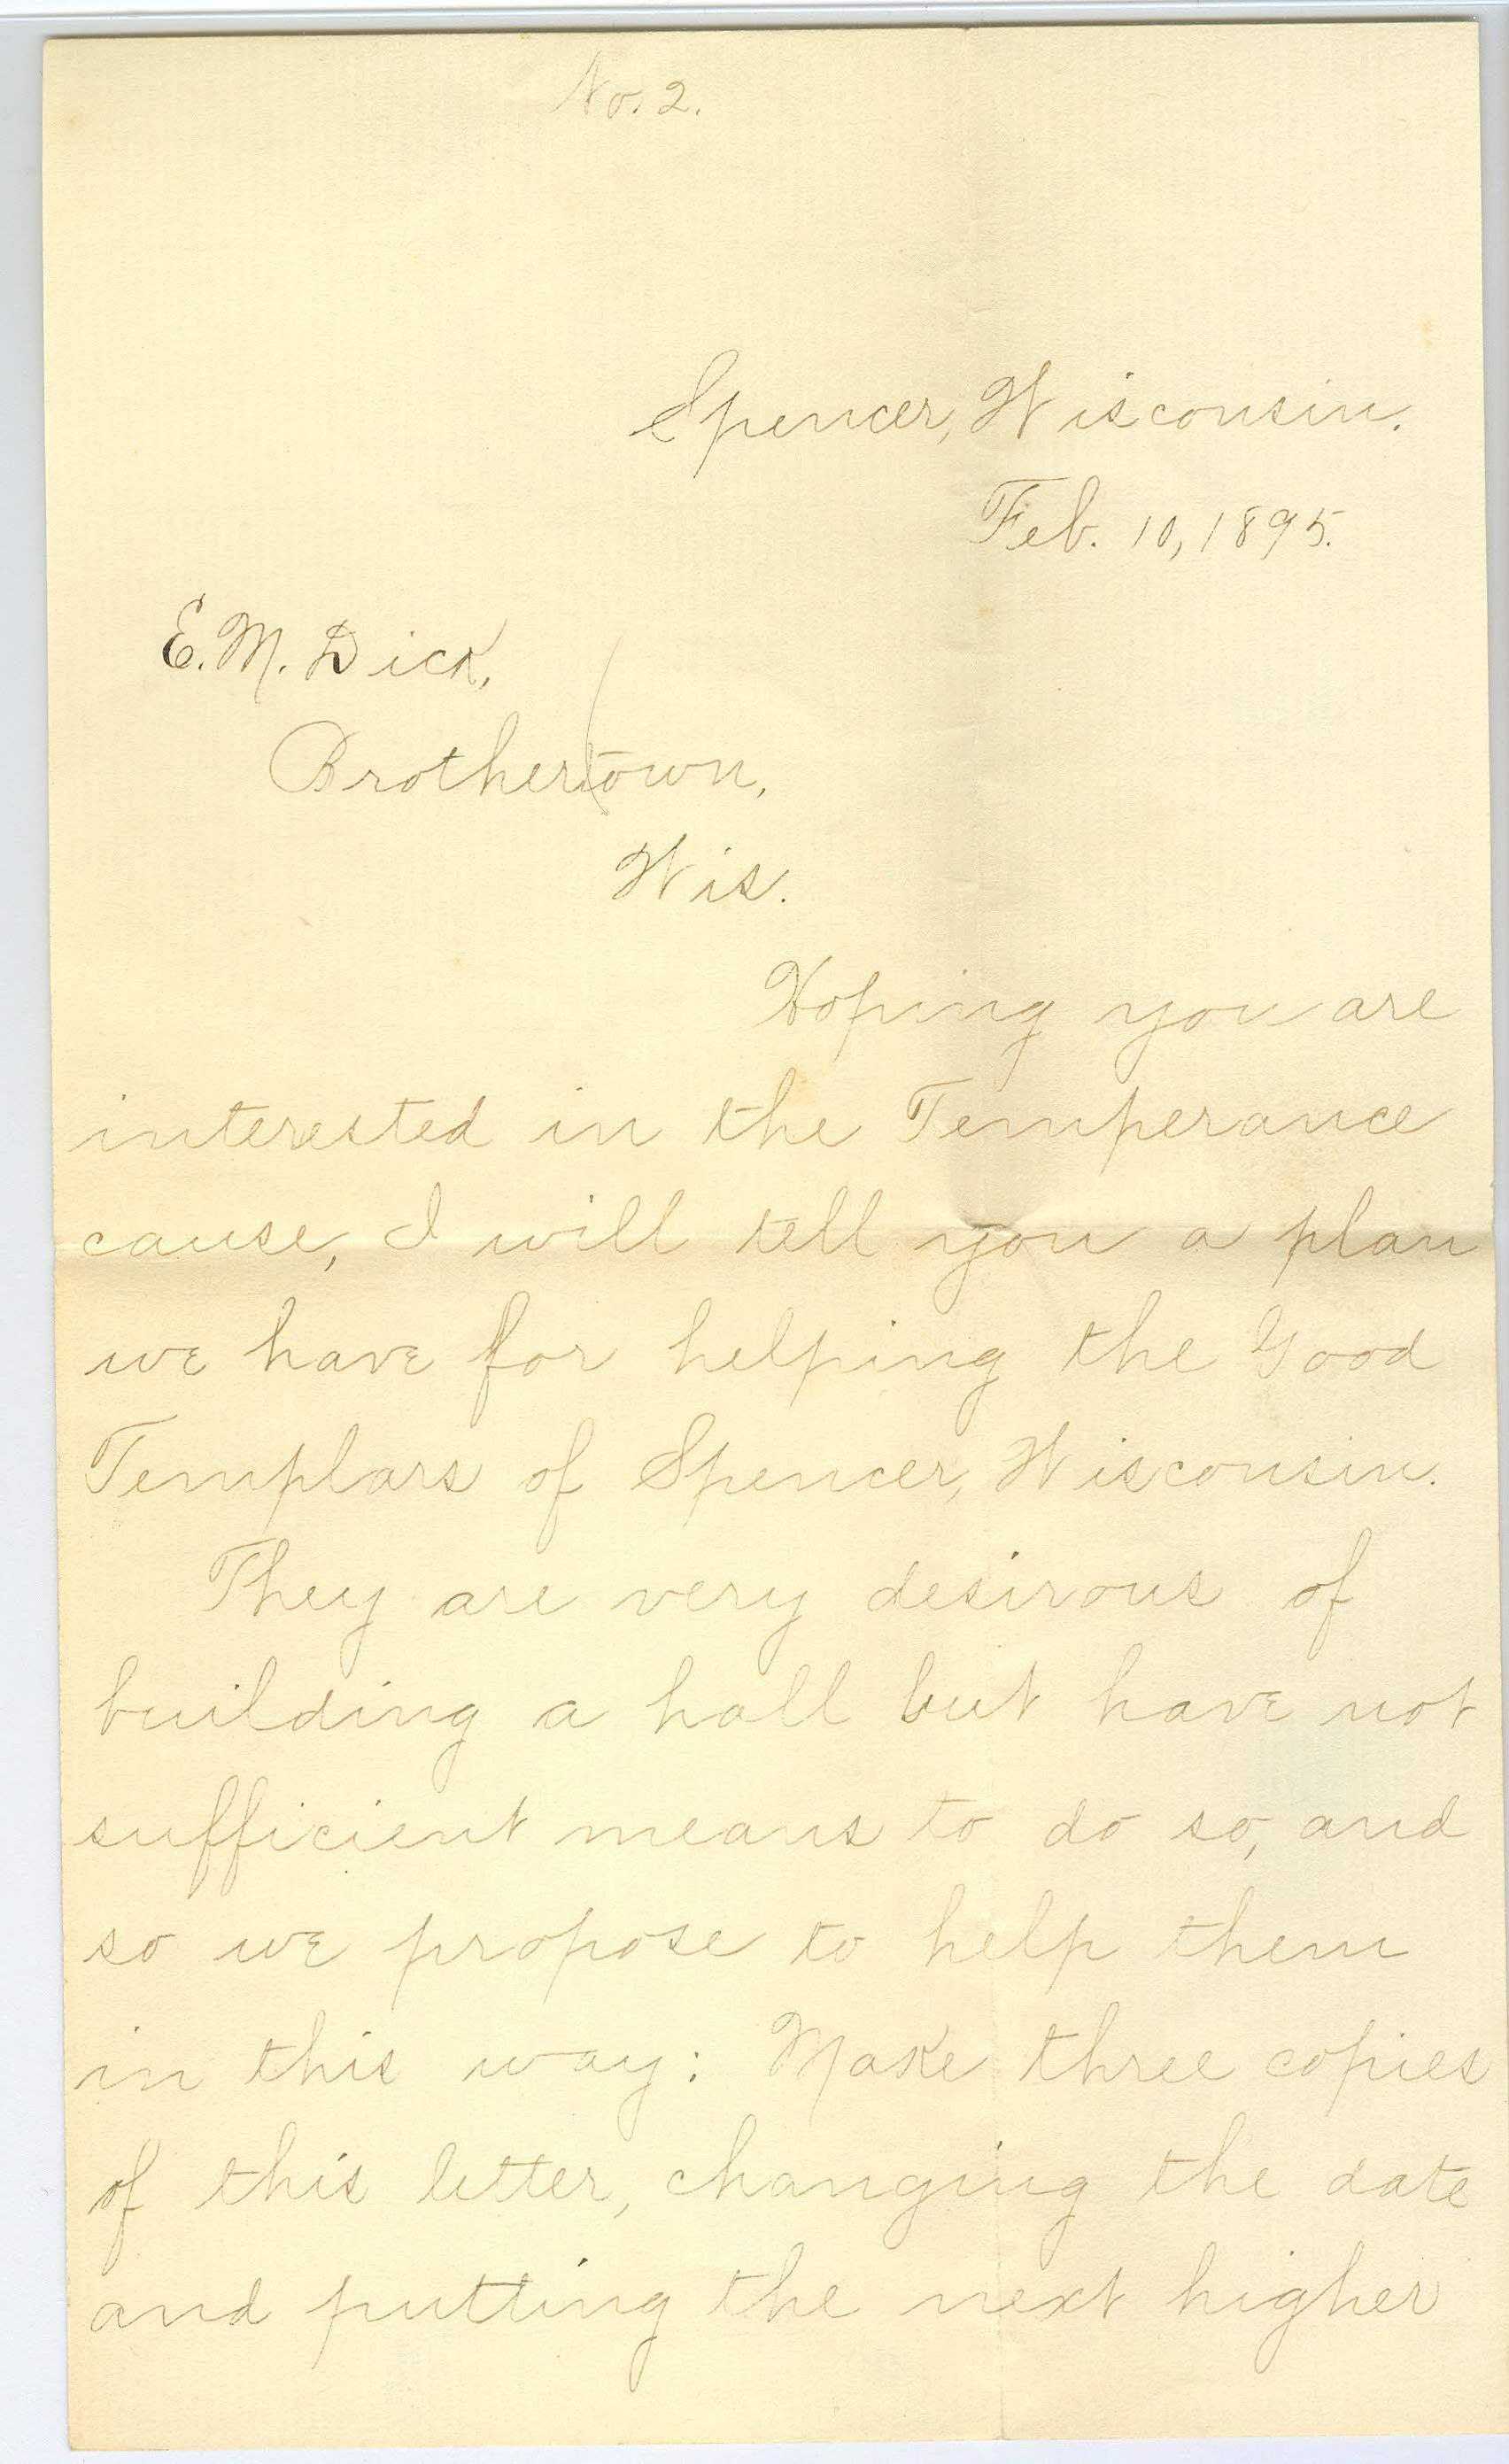 No. 2.
Spencer, Wisconsin.
Feb. 10, 1895.
E. M. Dick,
Brothertown,
Wis.
Hoping you are
interested in the Temperance
cause, I will tell you a plan
we have for helping the Good
Templars of Spencer, Wisconsin.
They are very desirous of
building a hall but have not
sufficient means to do so, and
so we propose to help them
in this way: Make three copies
of this letter, changing the date
and putting the next higher